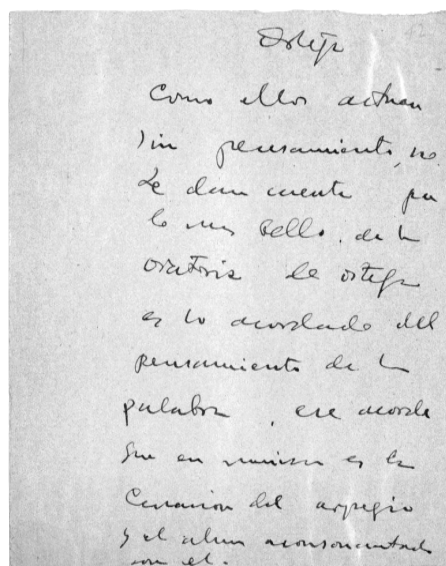 Ortega
Como ellos actuan
sin pensamiento, no
se dan cuenta que
lo mas bello, de la
oratoria de ortega
es lo acordado del
pensamiento de la
palabra, ese acorde
que en musica es la
del arpegio
y el alma aconsonantado
con el.